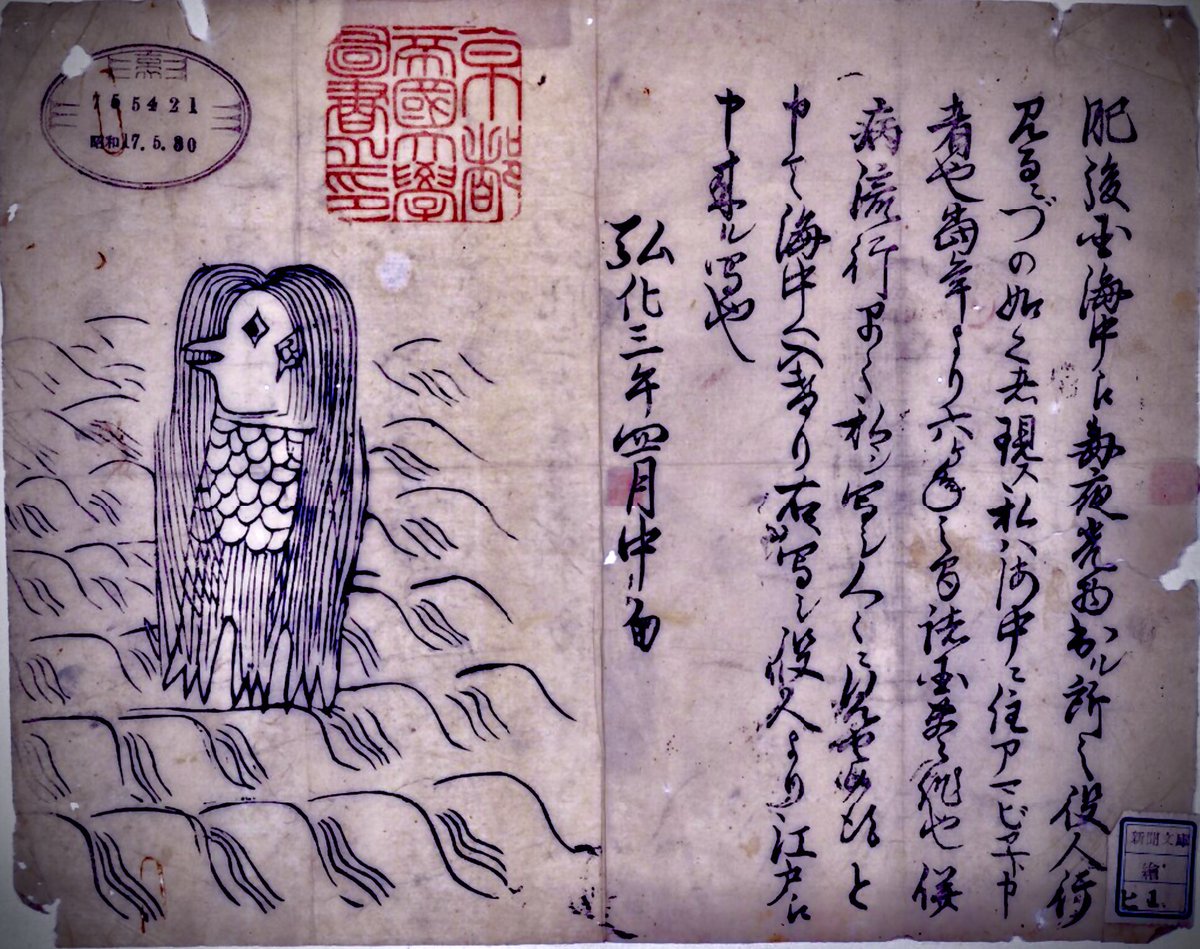 肥後国海中江毎夜光物出ル所之役人行
見るニづの如く之者現ス私ハ海中ニ住アマビヱト申
者也當年より六ヶ年之間諸国豊作也併
病流行早々私シ写シ人々ニ見セ候得と
申て海中へ入けり右写シ役人より江戸江
申来ル写也
弘化三年四月中旬
京都
帝國大學
圖書之印
昭和17.5.30
新聞文庫
繪